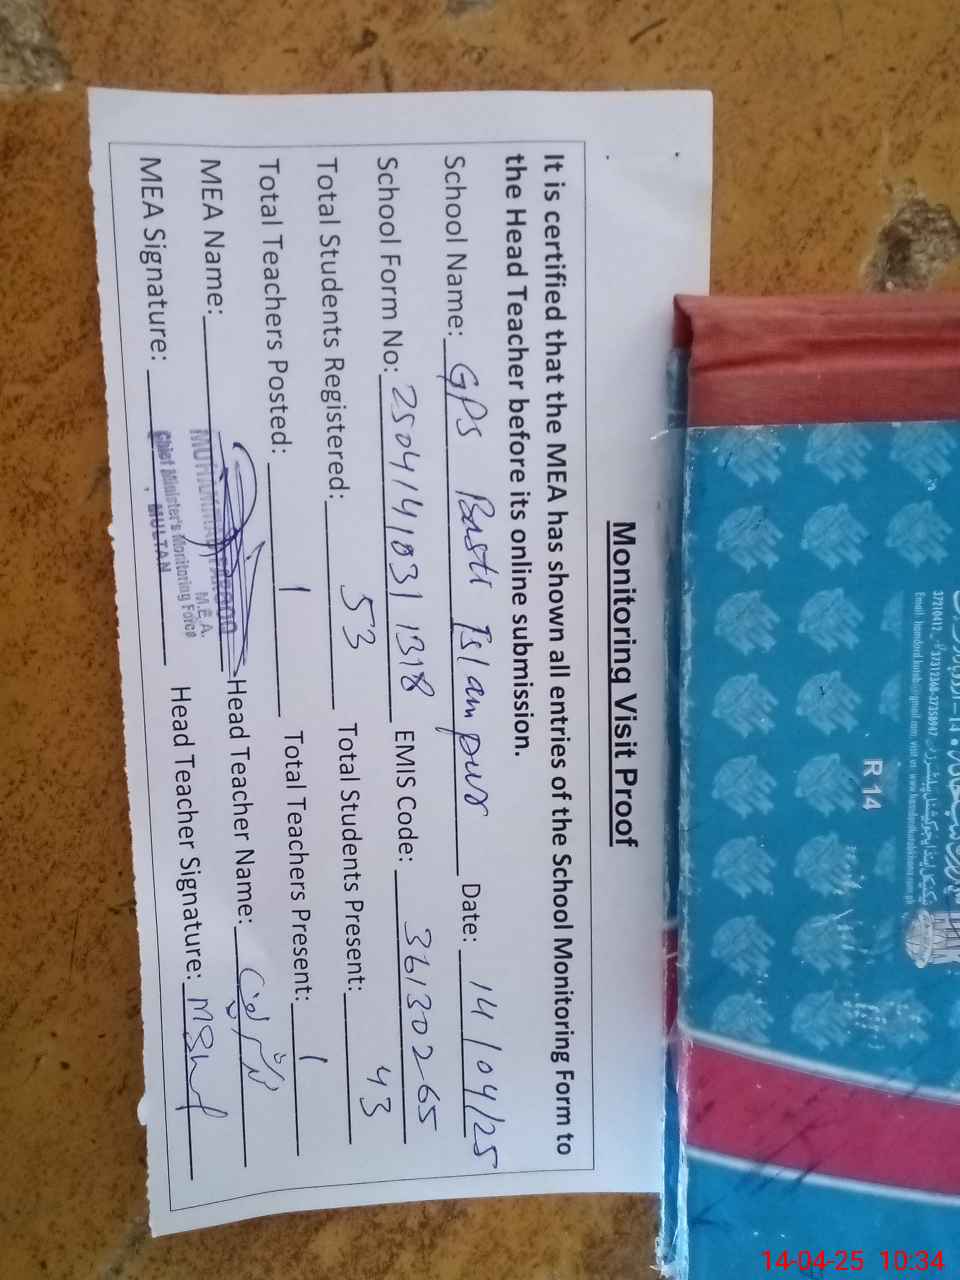 Monitoring Visit Proof
It is certified that the MEA has shown all entries of the School Monitoring Form to
the Head Teacher before its online submission.
School Name: GPS Basti Islampur Date: 14/04/25
School Form No: 2504141031318 EMIS Code: 36130265
Total Students Registered: 53 Total Students Present: 43
Total Teachers Posted: 1 Total Teachers Present: 1
MEA Name: Head Teacher Name:
M.E.A.
MEA Signature: Head Teacher Signature:
Chief Minister's Monitoring Force
MULTAN
R 14
14-04-25 10:34